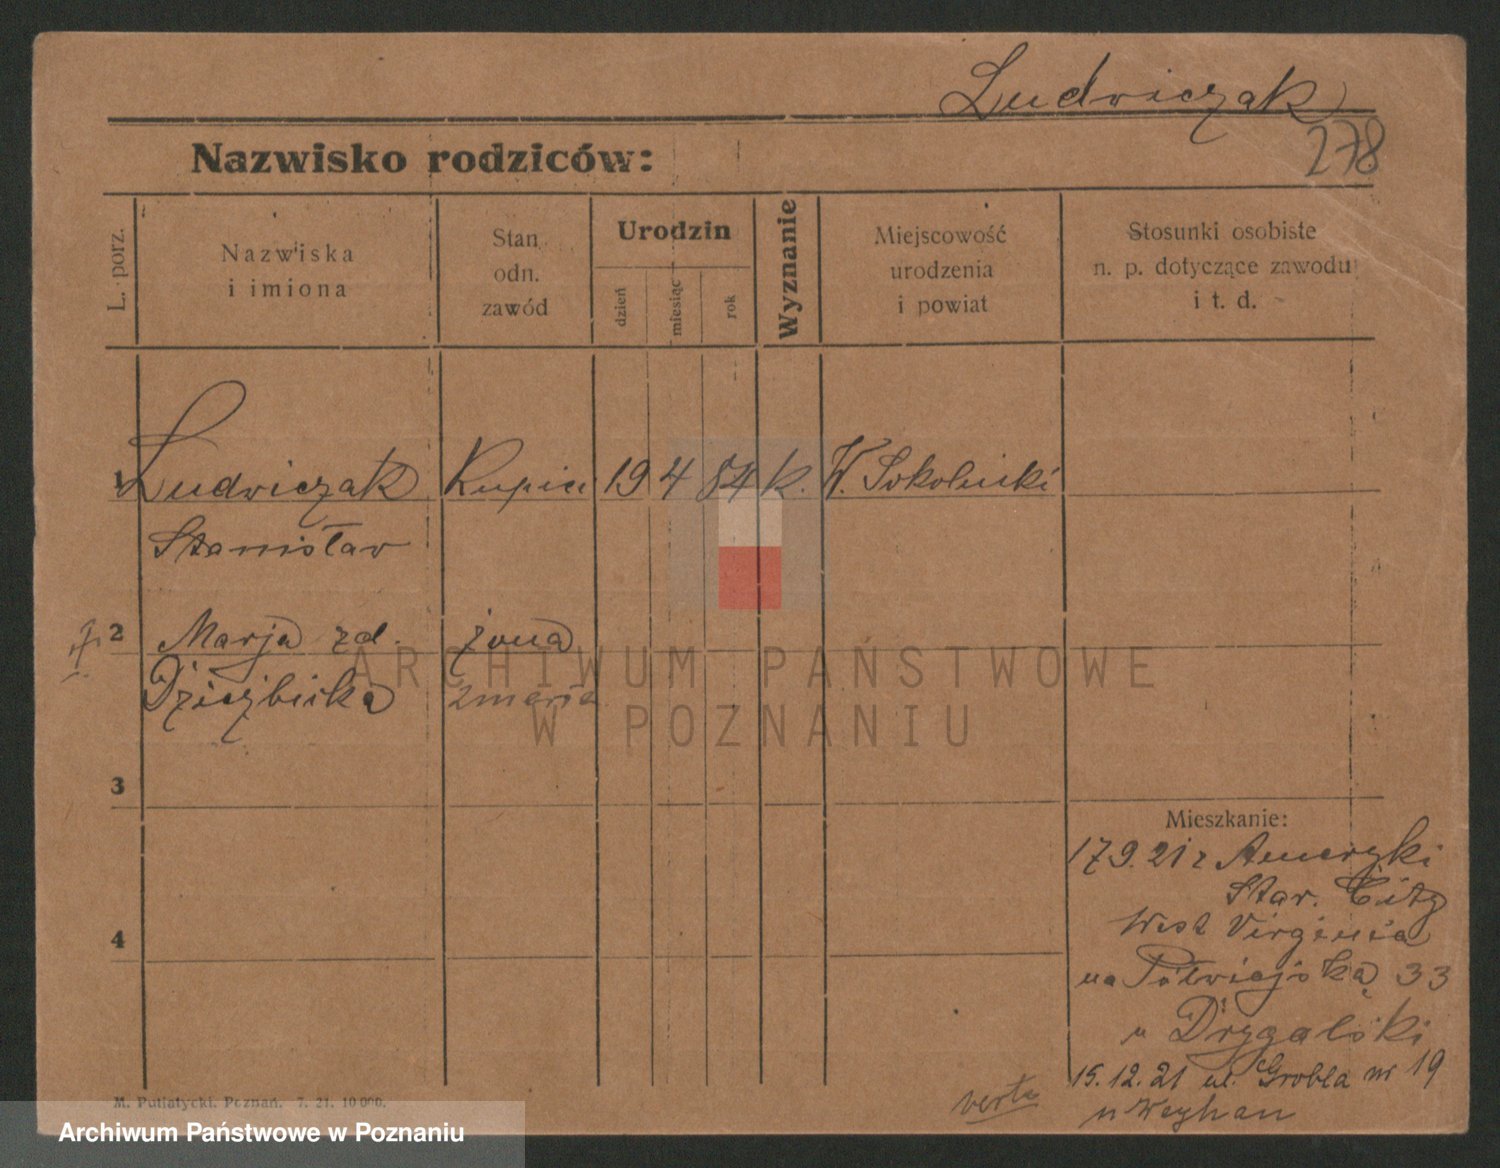 Ludwiczak
278
Nazwisko rodziców:
L. porz.
Nazwiska
i imiona
Stan
odn.
zawód
Urodzin
dzień
miesiąc
rok
Wyznanie
Miejscowość
urodzenia
i powiat
Stosunki osobiste
n. p. dotyczące zawodu
i t. d.
1 Ludwiczak Kupiec 19 4 84 k. W. Sokolniki
Stanisław
2 Marja zd. żona
Dzieżbicka zmarła
ARCHIWUM PAŃSTWOWE
W POZNANIU
3
Mieszkanie:
17.9.21 z Ameryki
Star. City
West Virginia
4
na Półwiejską 33
u Drygalski
15.12.21 ul. Grobla nr 19
u Weyhan
verte
M. Putiatycki, Poznań. 7. 21. 10 000.
Archiwum Państwowe w Poznaniu